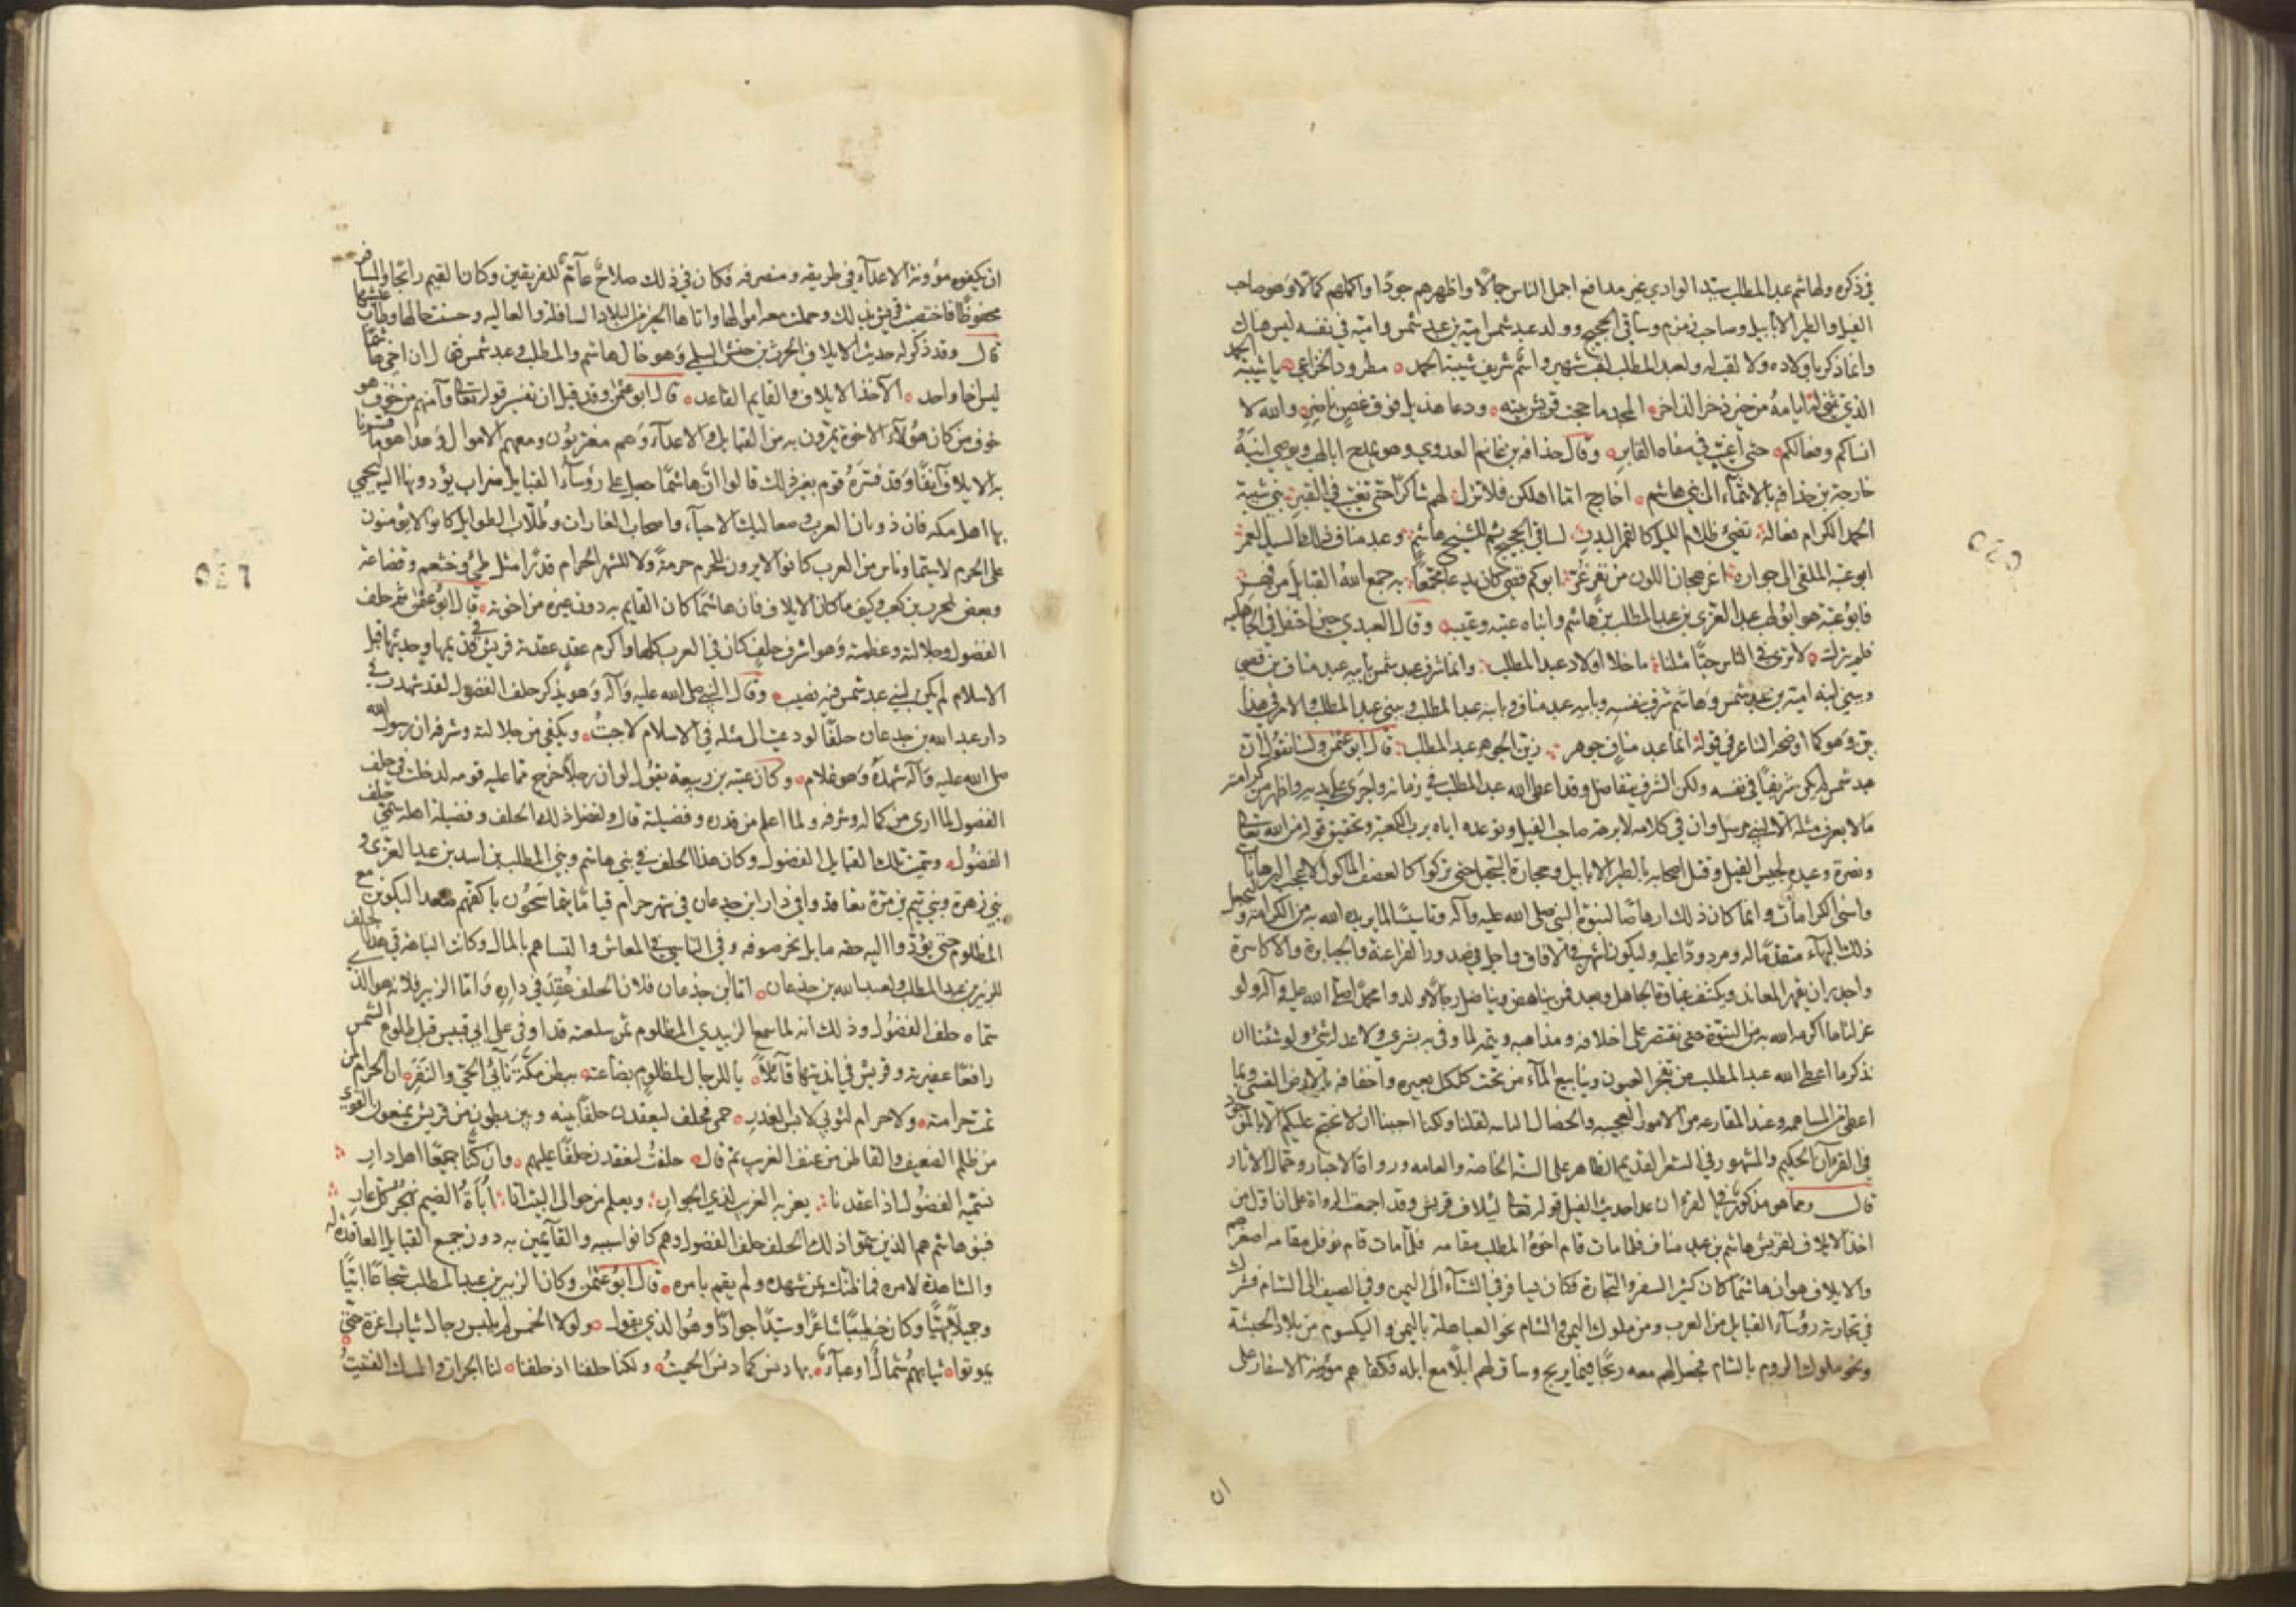 في ذكره ولهاشم عبد المطلب سيد الوادي غير مدافع اجمل الناس جمالا واظهرهم جودا واكملهم كمالا وهو صاحب
الفيل والطير الابابيل وصاحب زمزم وساقي الحجيج وولد عبد شمس امية بن عبد شمس وامية في نفسه ليس هناك
وانما ذكر باولاده ولا لقب له ولعبد المطلب لقب شهير واسم شريف شيبة الحمد مطرود الخزاعي يا شيبة الحمد
الذي تثني له ايامه من خير ذخر الذاخر المجد ما حجت قريش بيته ودعا هذيل فوق غصن ناضر والله لا
انساكم وفعالكم حتى اغيب في سفاه القابر وقال حذافه بن غانم العدوي وهو يمدح ابا لهب ويوصي ابنه
خارجة بن حذافه بالانتماء الى بني هاشم اخارج اما اهلكن فلا تزل لهم شاكرا حتى تغيب في القبر بني شيبة
الحمد الكرام فعاله تضيء ظلام الليل كالقمر البدر لساقي الحجيج ثم للشيخ هاشم وعبد مناف ذلك السيد الغمر
ابو عتبة الملقى الى جواره اغر هجان اللون من نفر غر ابوكم قصي كان يدعا مجمعا به جمع الله القبايل من فهر
فابو عتبة هو ابو لهب عبد العزى بن عبد المطلب بن هاشم وابناه عتبه وعتيبه وقال العبدي حين احتفل في الجاهليه
فلم يترك لا ترى في الناس حيا مثلنا ما خلا اولاد عبد المطلب وانما شرف عبد شمس بابيه عبد مناف بن قصي
وبني ابنه امية بن عبد شمس وهاشم شرف بنفسه وبابيه عبد مناف وبابنه عبد المطلب وبنى عبد المطلب والامر في هذا
بين وهو كما اوضحه الشاعر في قوله انما عبد مناف جوهر زين الجوهر عبد المطلب قال ابو عثمن ولسنا نقول ان
عبد شمس لم يكن شريفا في نفسه ولكن الشرف يتفاضل وقد اعطى الله عبد المطلب في زمانه واجرى على يديه واظهر من كرامته
ما لا يعرف مثله الا لنبي مرسل وان في كلامه لابرهة صاحب الفيل وتوعده اياه برب الكعبة وتحقيق قوله من الله تعالى
ونصرة وعيده بحبس الفيل وقتل اصحابه بالطير الابابيل وحجارة السجيل حتى تركوا كالعصف الماكول لاعجب البرهانات
واسنى الكرامات وانما كان ذلك ارهاصا لنبوة النبي صلى الله عليه وآله وتاسيسا لما يريده الله به من الكرامة وليجعل
ذلك البهاء متقدما له ومردودا عليه وليكون اشهر في الافاق واجل في صدور الفراعنة والجبابرة والاكاسرة
واجدر ان يقهر المعاند ويكشف غباوة الجاهل وبعد فمن يناهض ويناضل رجالا ولدوا محمدا صلى الله عليه وآله ولو
عزلنا ما اكرمه الله به من النبوة حتى نقتصر على اخلاقه ومذاهبه وشيمه لما وفى به بشر ولا عدله شيء ولو شئنا ان
نذكر ما اعطى الله عبد المطلب من تفجر العيون وينابيع المآء من تحت كلكل بعيره واخفافه بالارض القسي وبما
اعطي من المساهمه وعند المقارعه من الامور العجيبه والخصال الباينه لقلنا ولكنا احببنا ان لا نحتج عليكم الا بالموجود
في القرآن الحكيم والمشهور في الشعر القديم الظاهر على السنة الخاصة والعامه ورواة الاخبار وحمال الاثار
قال ومما هو مذكور في القرءان عدا حديث الفيل قوله تعالى لئيلاف قريش وقد اجمعت الرواة على ان اول من
اخذ الايلاف لقريش هاشم بن عبد مناف فلما مات قام اخوه المطلب مقامه فلما مات قام نوفل مقامه اصغرهم
والايلاف هو ان هاشما كان كثير السفر والتجارة فكان يسافر في الشتآء الى اليمن وفي الصيف الى الشام فشرك
في تجارته رؤسآء القبايل من العرب ومن ملوك اليمن والشام نحو العباهلة باليمن واليكسوم من بلاد الحبشة
ونحو ملوك الروم بالشام فجعل لهم معه ربحا فيما يربح وساق لهم ابلا مع ابله فكفاهم مؤنة الاسفار على
ان
ان يكفوه مؤونة الاعدآء في طريقه ومنصرفه فكان في ذلك صلاح عآم للفريقين وكان المقيم رابحا والمسافر
محفوظا فاختصت قريش بذلك وحملت معه اموالها واتاها الخير من البلاد السافلة والعاليه وحسنت حالها وطاب عيشها
قال وقد ذكر له حديث الايلاف الحرث بن حنش السلمي وهو خال هاشم والمطلب وعبد شمس فقال ان اخي هاشما
ليس اخا واحد الآخذ الايلاف والقايم القاعد قال ابو عثمن وقد قيل ان تفسير قوله تعالى وآمنهم من خوف هو
خوف من كان هؤلآء الاخوة يمرون به من القبايل والاعدآء وهم مغتربون ومعهم الاموال وهذا هو ما فسرنا
به الايلاف آنفا وقد فسره قوم بغير ذلك قالوا ان هاشما جعل على رؤسآء القبايل ضرايب يؤدونها اليه ليحمي
بها اهل مكه فان ذوبان العرب وصعاليك الاحيآء واصحاب الغارات وطلاب الطوايل كانوا لا يؤمنون
على الحرم لاسيما وناس من العرب كانوا لا يرون للحرم حرمة ولا للشهر الحرام قدرا مثل طيء وخثعم وقضاعة
وبعض بلحرث بن كعب وكيف ما كان الايلاف فان هاشما كان القايم به دون غيره من اخوته قال ابو عثمن ثم حلف
الفضول وجلالته وعظمته وهو اشرف حلف كان في العرب كلها واكرم عقد عقدته قريش في قديمها وحديثها قبل
الاسلام لم يكن لبني عبد شمس فيه نصيب وقال النبي صلى الله عليه وآله وهو يذكر حلف الفضول لقد شهدت في
دار عبد الله بن جدعان حلفا لو دعيت الى مثله في الاسلام لاجبت ويكفي من جلالته وشرفه ان رسول الله
صلى الله عليه وآله شهده وهو غلام وكان عتبه بن ربيعة يقول لو ان رجلا خرج مما عليه قومه لدخلت في حلف
الفضول لما ارى من كماله وشرفه ولما اعلم من قدره وفضيلته قال ولفضل ذلك الحلف وفضيلة اهله سمي حلف
الفضول وسميت تلك القبايل الفضول وكان هذا الحلف في بني هاشم وبني المطلب بن اسد بن عبد العزى و
بني زهرة وبني تيم بن مرة تعاقدوا في دار ابن جدعان في شهر حرام قياما يتماسحون باكفهم صعدا ليكونن مع
المظلوم حتى يؤدوا اليه حقه ما بل بحر صوفه وفي التآسي في المعاش والتساهم بالمال وكانت النباهة في هذا الحلف
للزبير بن عبد المطلب ولعبد الله بن جدعان اما ابن جدعان فلان الحلف عقد في داره واما الزبير فلانه هو الذي
سماه حلف الفضول وذلك انه لما سمع الزبيدي المظلوم ثمن سلعته قد اوفى على ابي قبيس قبل طلوع الشمس
رافعا عقيرته وقريش في انديتها قآئلا يا للرجال لمظلوم بضاعته ببطن مكة نآئي الحي والنفر ان الحرام لمن
تمت حرامته ولا حرام لثوبي لابس الغدر حمى فحلف ليعقدن حلفا بينه وبين بطون من قريش يمنعون القوي
من ظلم الضعيف والقاطن من عنف الغريب ثم قال حلفت لنعقدن حلفا عليهم وان كنا جميعا اهل دار
نسميه الفضول اذا عقدنا يعز به الغريب لذي الجوار ويعلم من حوالى البيت انا اباة الضيم نهجر كل عار
فبنو هاشم هم الذين سموا ذلك الحلف حلف الفضول وهم كانوا سببه والقآئمين به دون جميع القبايل العاقدة له
والشاهدة لامره فما ظنك بمن شهده ولم يقم بامره قال ابو عثمن وكان الزبير بن عبد المطلب شجاعا ابيا
وجميلا بهيا وكان خطيبا شاعرا وسيدا جوادا وهو الذي يقول ولولا الحمس لم يلبس رجال ثياب اعزة حتى
يموتوا ثيابهم شمال او عبآء بها دنس كما دنس الحميت ولكنا خلقنا اذ خلقنا لنا الحبرات والمسك الفتيت